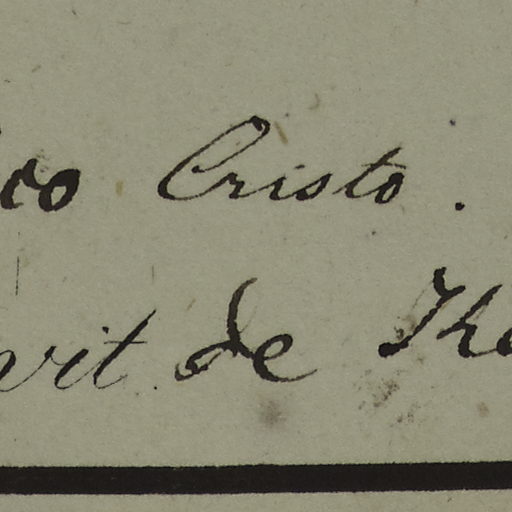 co Cristo.
vit de The